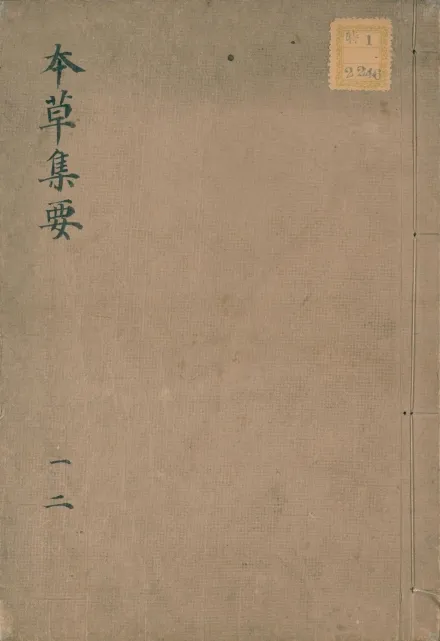 本草集要
一
二
特 1
2246